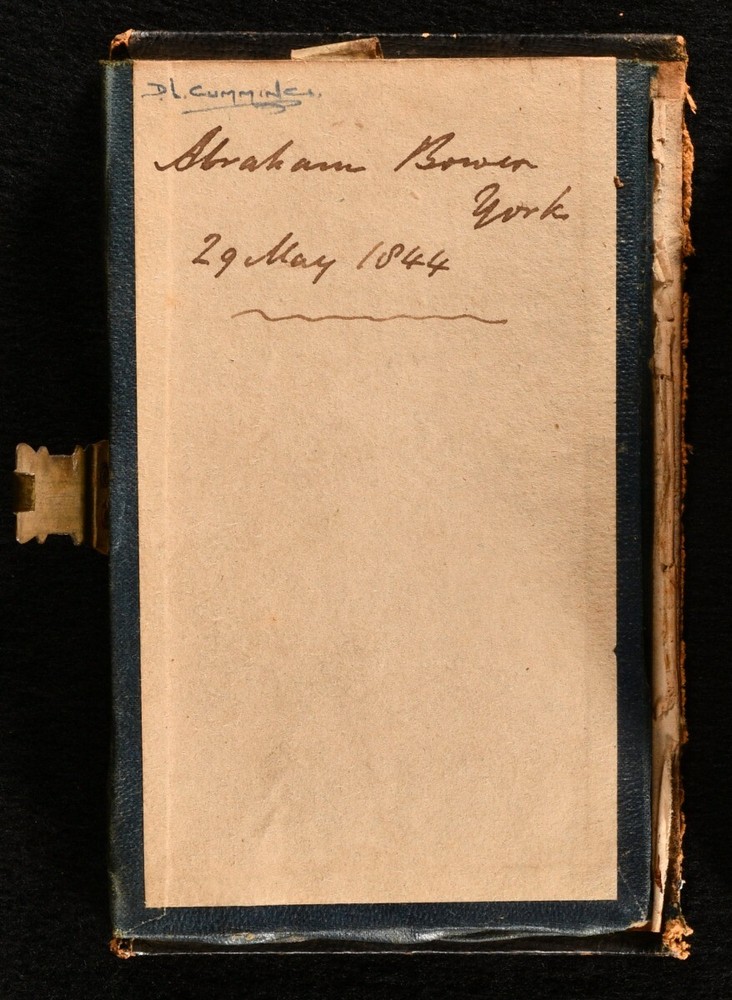 D.L. CUMMINGS.
Abraham Bower
York
29 May 1844